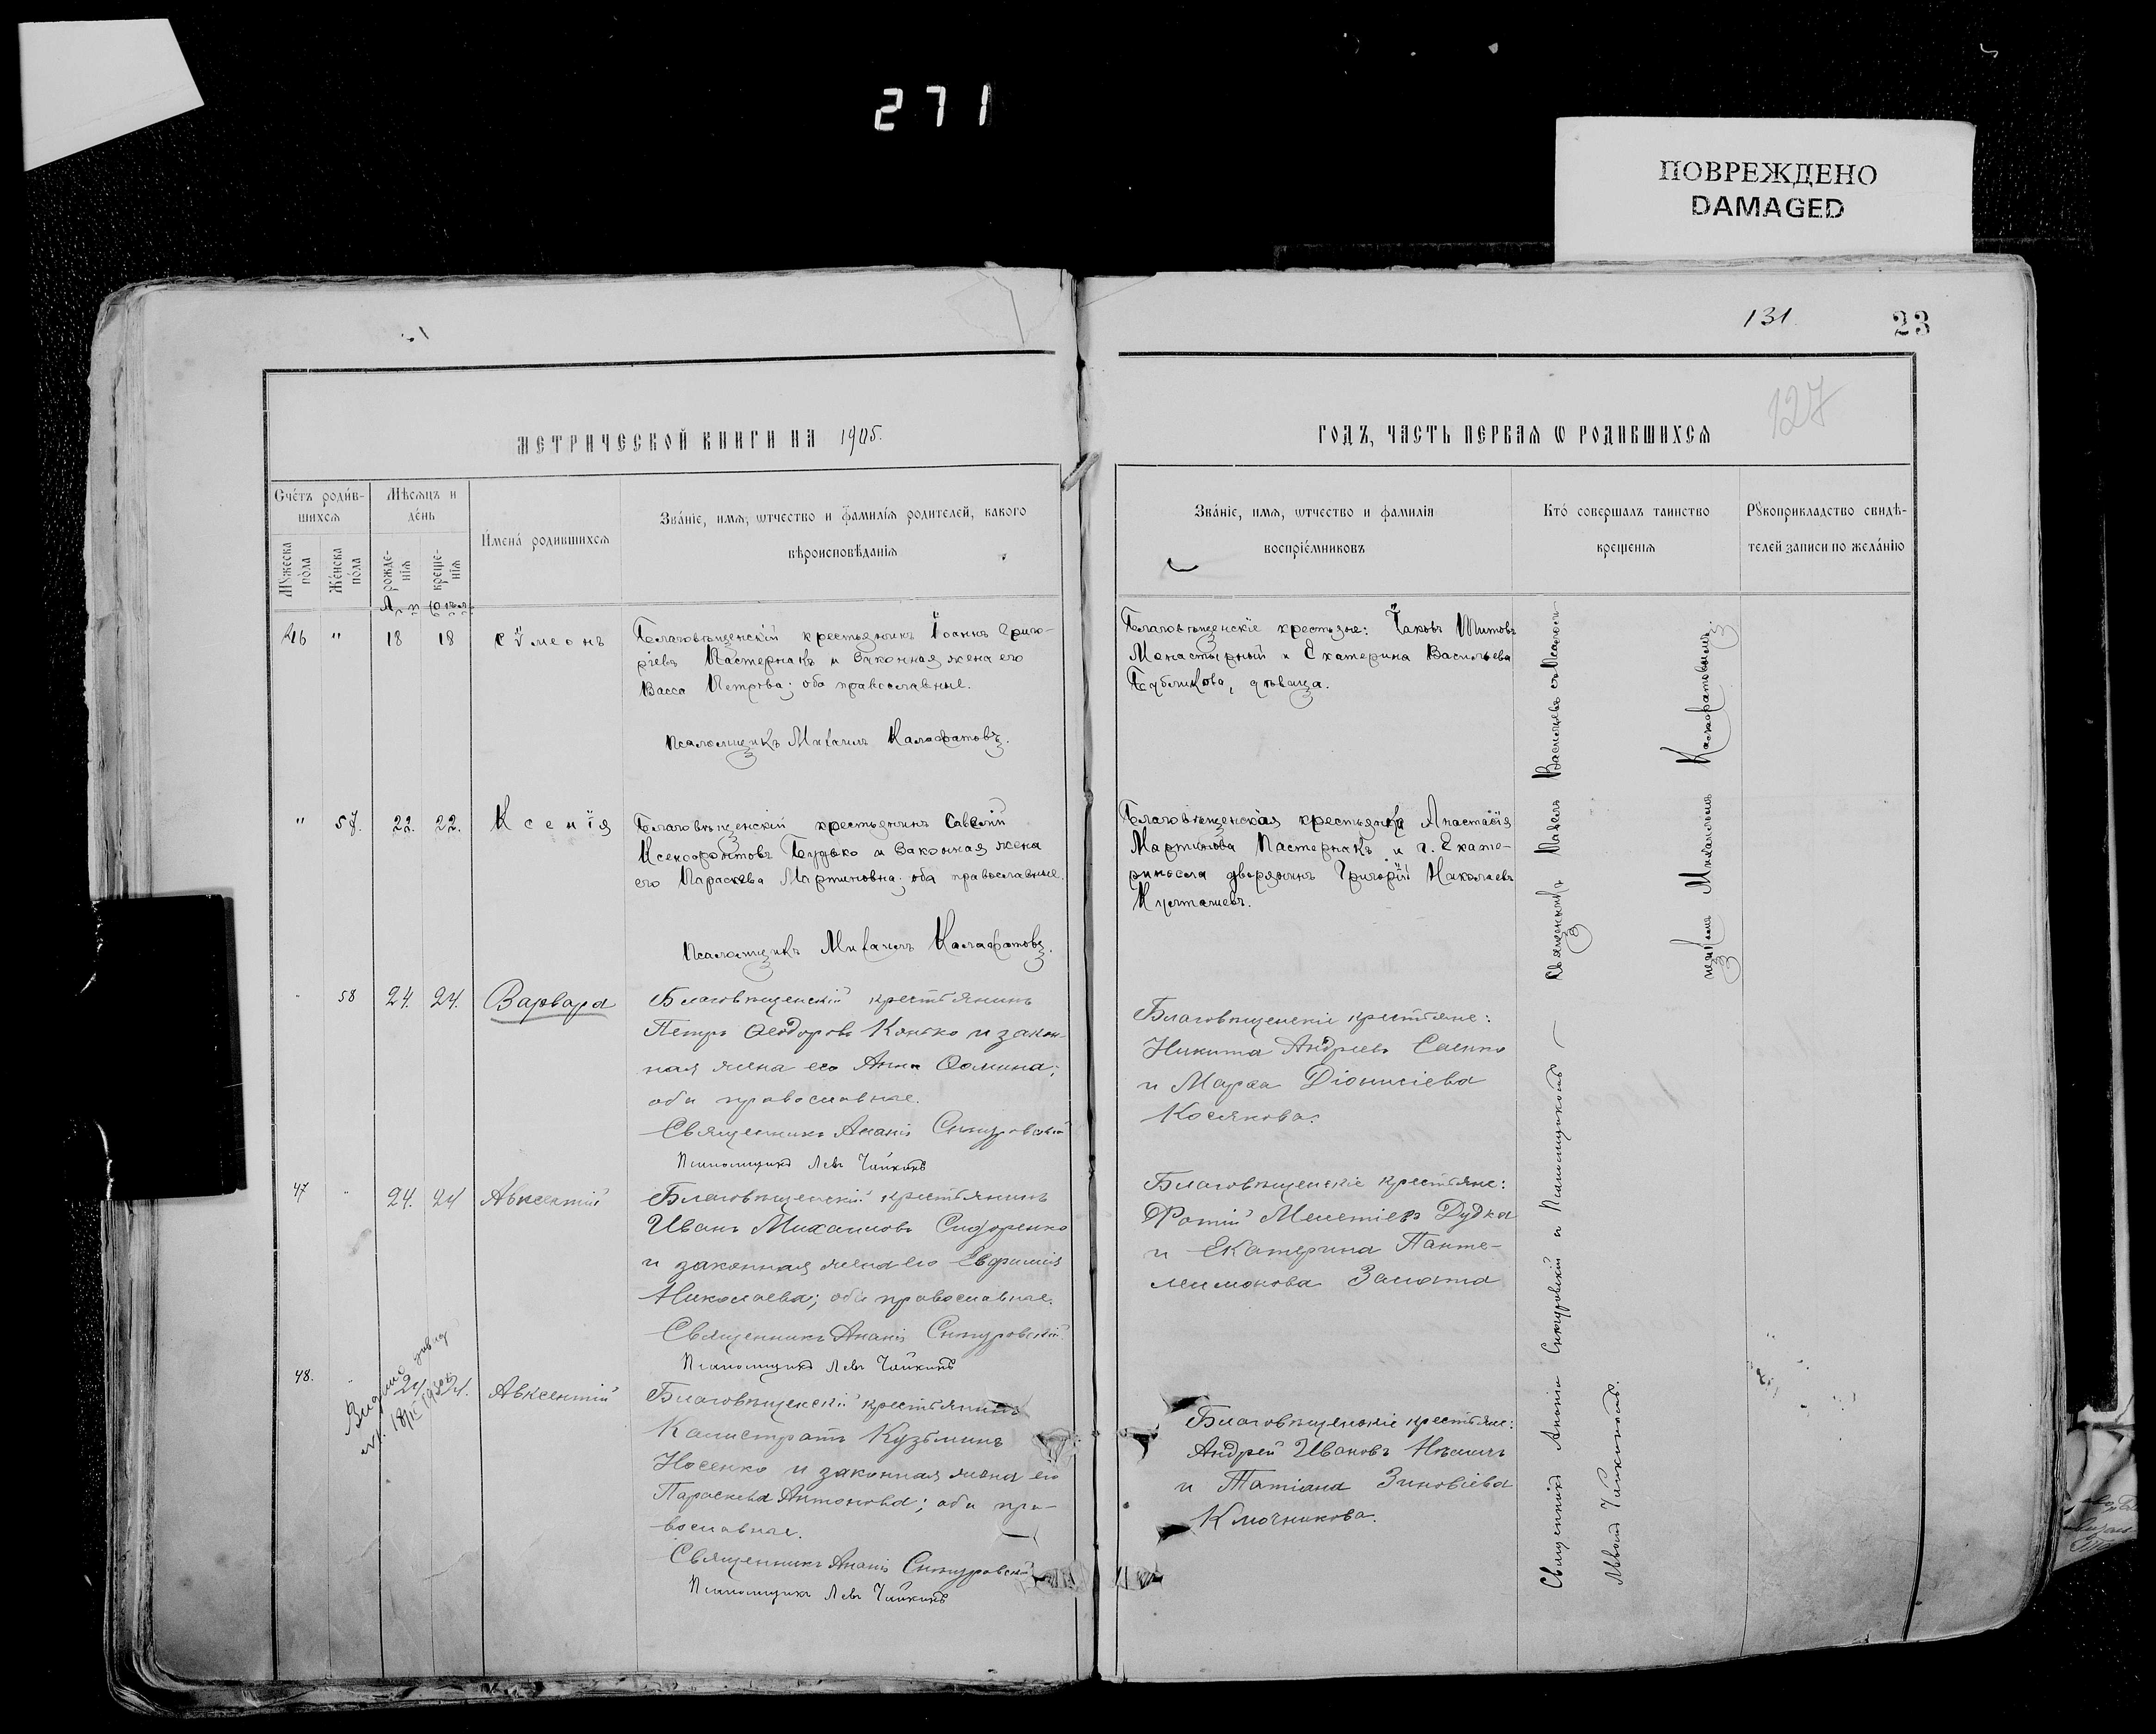 271
ПОВРЕЖДЕНО
DAMAGED
131.
23
127
МЕТРИЧЕСКОЙ КНИГИ НА 1905.
ГОДЪ, ЧАСТЬ ПЕРВАЯ Ѡ РОДИВШИХСЯ
Счетъ родившихся
Мѣсяцъ и день
Мужеска пола
Женска пола
рожденія
крещенія
Имена родившихся
Званіе, имя, ѡтчество и фамилія родителей, какого
вѣроисповѣданія
Званіе, имя, ѡтчество и фамилія
воспріемниковъ
Кто совершалъ таинство
крещенія
Рукоприкладство свидѣ-
телей записи по желанію
46 " 18 18 Сѵмеонъ
Благовѣщенскій крестьянинъ Іоаннъ Григо-
ріевъ Пастернакъ и законная жена его
Васса Петрова; оба православные.
Псаломщикъ Михаилъ Калафатовъ.
Благовѣщенскіе крестьяне: Іаковъ Титовъ
Монастырный и Екатерина Васильева
Бубликова, дѣвица.
" 57. 22. 22. Ксенія
Благовѣщенскій крестьянинъ Савелій
Ксенофонтовъ Будько и законная жена
его Параскева Мартиновна; оба православные.
Псаломщикъ Михаилъ Калафатовъ.
Благовѣщенская крестьянка Анастасія
Мартинова Пастернакъ и г. Екате-
дворянинъ Григорій Николаевъ
58 24. 24. Варвара
Благовѣщенскій крестьянинъ
Петръ Ѳеодоровъ Конько и закон-
ная жена его Анна Ѳомина;
оба православные.
Священникъ Ананія Снигуровскій
Псаломщикъ Левъ Чайкинъ
Благовѣщенскіе крестьяне:
Никита Андреевъ Саенко
и Марѳа Діонисіева
Косякова.
47 " 24. 24 Авксентій
Благовѣщенскій крестьянинъ
Иванъ Михаиловъ Сидоренко
и законная жена его Евфимія
Николаева; оба православные.
Священникъ Ананія Снигуровскій
Псаломщикъ Левъ Чайкинъ
Благовѣщенскіе крестьяне:
Фотій Мелетіевъ Дудка
и Екатерина Панте-
леимонова Залата
48. " 24. 24. Авксентій
Благовѣщенскій крестьянинъ
Калистратъ Кузьминъ
Носенко и законная жена его
Параскева Антонова; оба пра-
вославные.
Священникъ Ананія Снигуровскій
Псаломщикъ Левъ Чайкинъ
Благовѣщенскіе крестьяне:
Андрей Ивановъ
и Татіана Зиновіева
Ключникова.
Священникъ Павелъ Васильевъ
Михаиломъ Калафатовымъ.
Священникъ Ананія Снигуровскій и Псаломщикомъ
Львомъ Чайкинымъ.